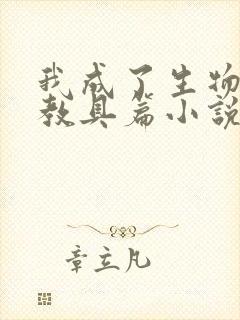 我成了生物
教具篇小説
章立凡